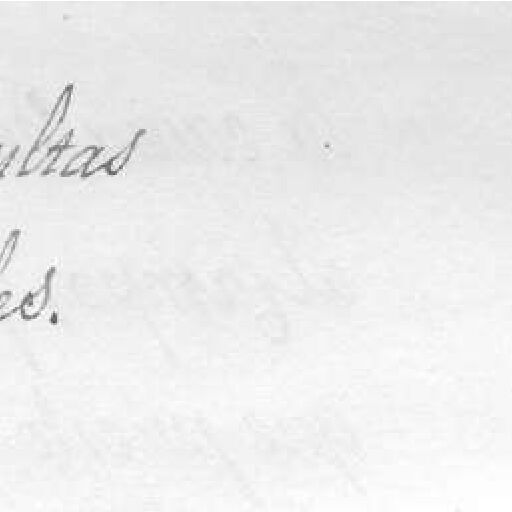 ultas
les.